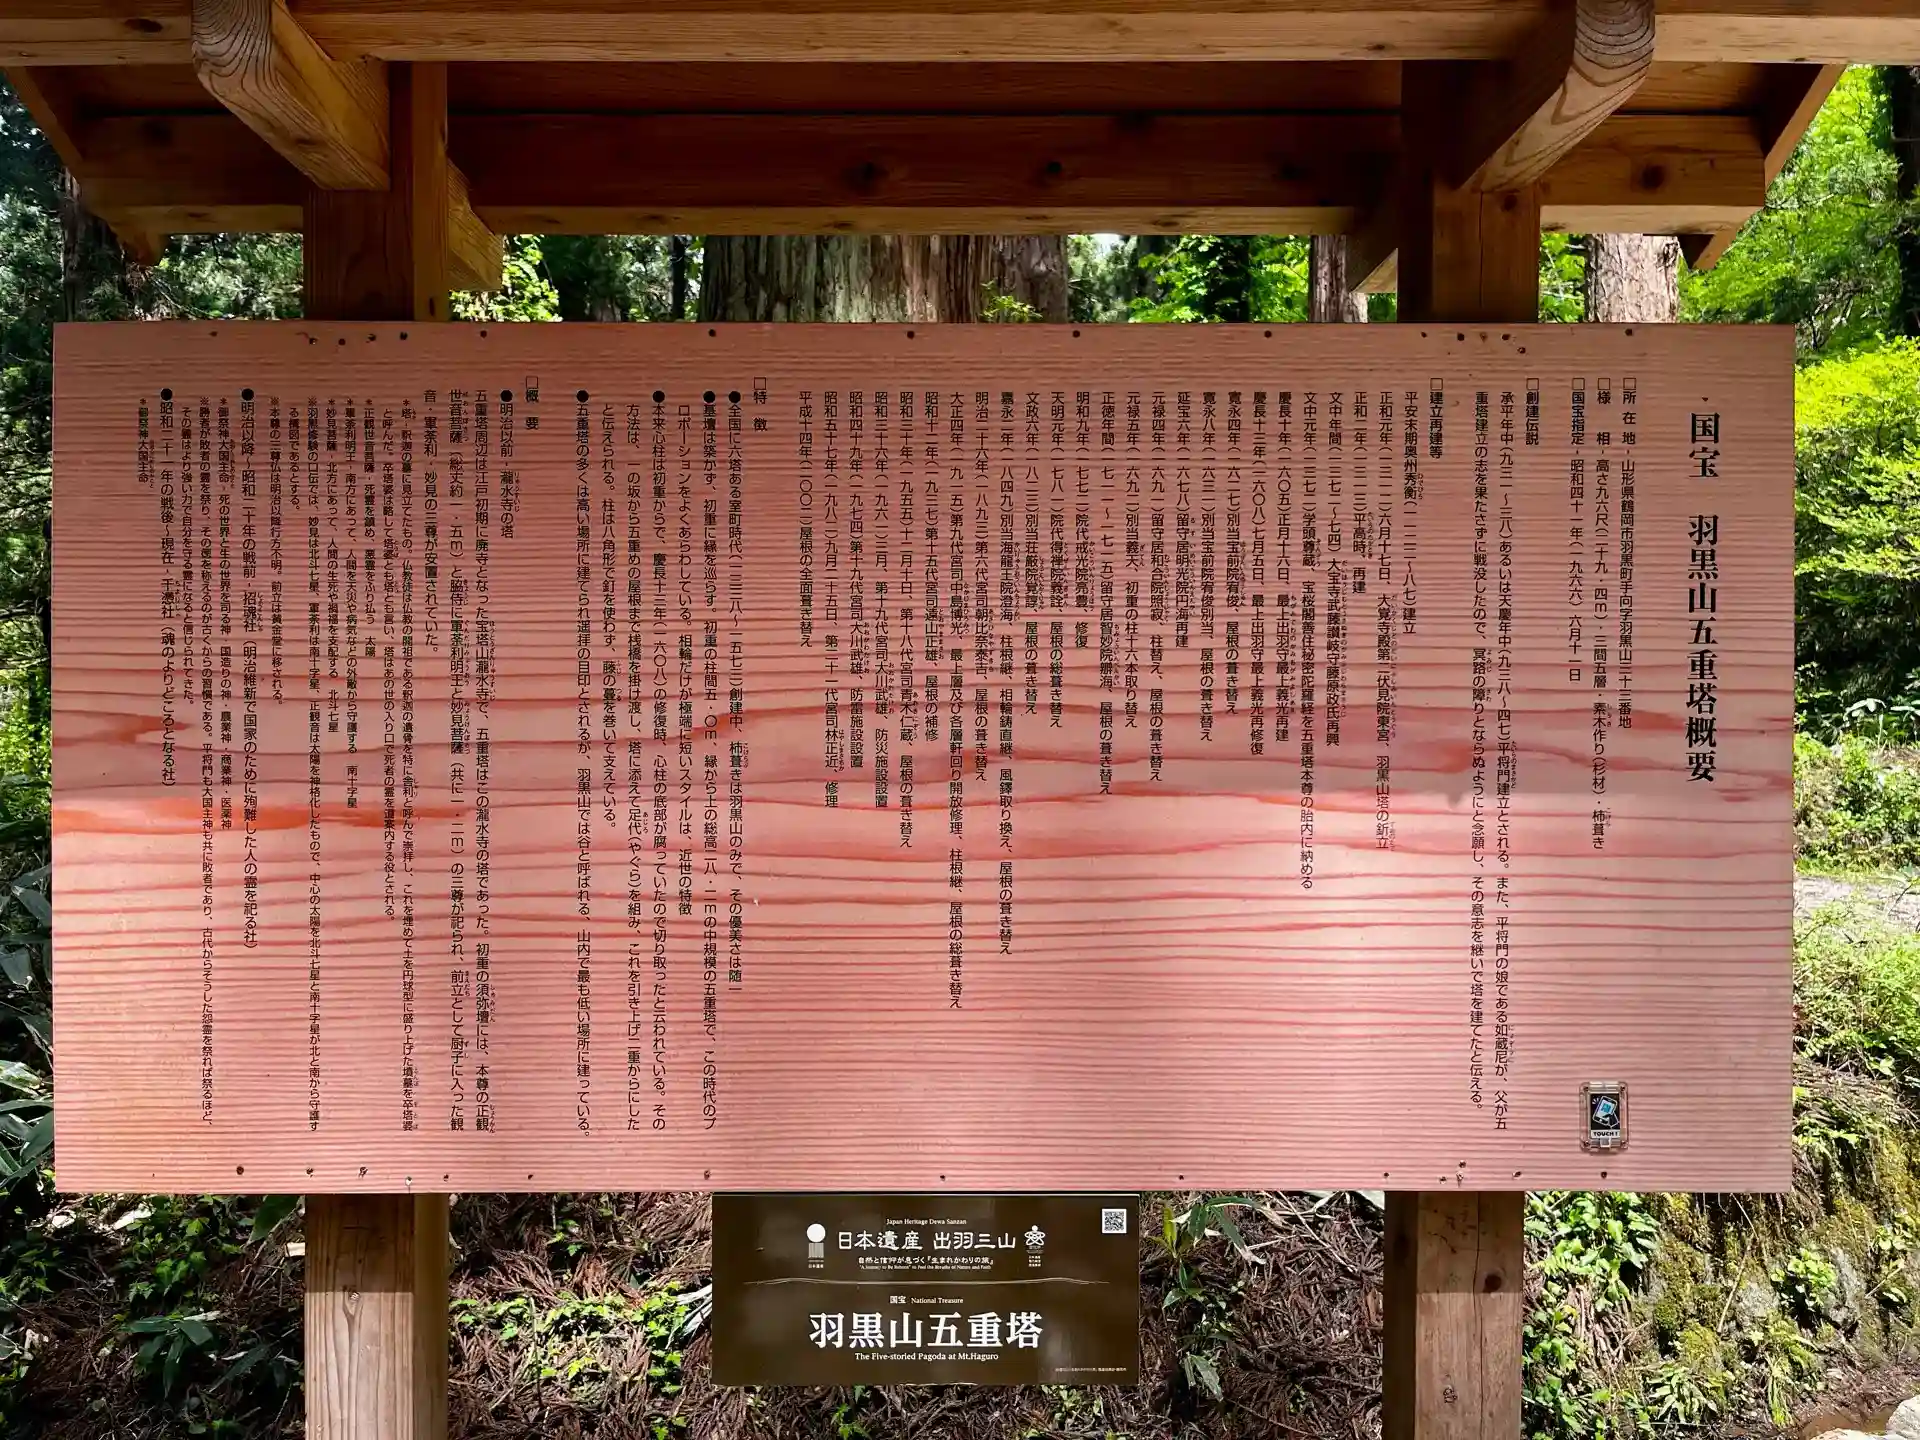 国宝　羽黒山五重塔概要
□所　在　地 - 山形県鶴岡市羽黒町手向字羽黒山三十三番地
□様　　相 - 高さ九六尺(二十九・四m)・三間五層・素木作り(杉材)・杮葺き
□国宝指定 - 昭和四十一年(一九六六)六月十一日
□創建伝説
承平年中(九三一〜三八)あるいは天慶年中(九三八〜四七)平将門建立とされる。また、平将門の娘である如蔵尼が、父が五
重塔建立の志を果たさずに戦没したので、冥路の障りとならぬようにと念願し、その意志を継いで塔を建てたと伝える。
□建立再建等
平安末期奥州秀衡(一一二二〜八七)建立
正和元年(一三一二)六月十七日、大覚寺殿第二伏見院東宮、羽黒山塔の釿立
正和二年(一三一三)平高時、再建
文中年間(一三七二〜七四)大宝寺武藤讃岐守藤原政氏再興
文中元年(一三七二)学頭尊蔵、宝桜閣善住秘密陀羅経を五重塔本尊の胎内に納める
慶長十年(一六〇五)正月十六日、最上出羽守最上義光再建
慶長十三年(一六〇八)七月五日、最上出羽守最上義光再修復
寛永四年(一六二七)別当宝前院宥俊、屋根の葺き替え
寛永八年(一六三一)別当宝前院宥俊別当、屋根の葺き替え
延宝六年(一六七八)留守居明光院円海再建
元禄四年(一六九一)留守居和合院照寂、柱替え、屋根の葺き替え
元禄五年(一六九二)別当義天、初重の柱十六本取り替え
正徳年間(一七一一〜一七一五)留守居智妙院胐海、屋根の葺き替え
明和九年(一七七二)院代戒光院亮豊、修復
天明元年(一七八一)院代得禅院義詮、屋根の総葺き替え
文政六年(一八二三)別当荘厳院覚諄、屋根の葺き替え
嘉永二年(一八四九)別当海龍王院澄海、柱根継、相輪鋳直継、風鐸取り換え、屋根の葺き替え
明治二十六年(一八九三)第六代宮司朝比奈泰吉、屋根の葺き替え
大正四年(一九一五)第九代宮司中島博光、最上層及び各層軒回り開放修理、柱根継、屋根の総葺き替え
昭和十二年(一九三七)第十五代宮司遠山正雄、屋根の補修
昭和三十年(一九五五)十二月十日、第十八代宮司青木仁蔵、屋根の葺き替え
昭和三十六年(一九六一)三月、第十九代宮司大川武雄、防災施設設置
昭和四十九年(一九七四)第十九代宮司大川武雄、防雷施設設置
昭和五十七年(一九八二)九月二十五日、第二十一代宮司林正近、修理
平成十四年(二〇〇二)屋根の全面葺き替え
□特　　徴
●全国に六塔ある室町時代(一三三八〜一五七三)創建中、杮葺きは羽黒山のみで、その優美さは随一
●基壇は築かず、初重に縁を巡らす。初重の柱間五・〇m、縁から上の総高二八・二mの中規模の五重塔で、この時代のプ
ロポーションをよくあらわしている。相輪だけが極端に短いスタイルは、近世の特徴
●本来心柱は初重からで、慶長十三年(一六〇八)の修復時、心柱の底部が腐っていたので切り取ったと云われている。その
方法は、一の坂から五重めの屋根まで桟橋を掛け渡し、塔に添えて足代(やぐら)を組み、これを引き上げ二重からにした
と伝えられる。柱は八角形で釘を使わず、藤の蔓を巻いて支えている。
●五重塔の多くは高い場所に建てられ遥拝の目印とされるが、羽黒山では谷と呼ばれる、山内で最も低い場所に建っている。
□概　　要
●明治以前 - 瀧水寺の塔
五重塔周辺は江戸初期に廃寺となった宝塔山瀧水寺で、五重塔はこの瀧水寺の塔であった。初重の須弥壇には、本尊の正観
世音菩薩(総丈約一・五m)と脇侍に軍荼利明王と妙見菩薩(共に一・二m)の三尊が祀られ、前立として厨子に入った観
音・軍荼利・妙見の三尊が安置されていた。
＊塔 - 釈迦の墓に見立てたもの。仏教徒は仏教の開祖である釈迦の遺骨を特に舎利と呼んで崇拝し、これを埋めて土を円球型に盛り上げた墳墓を卒塔婆
と呼んだ。卒塔婆は略して塔婆とも塔とも言い、塔はあの世の入り口で死者の霊を道案内する役とされる。
＊正観世音菩薩 - 死霊を鎮め、悪霊をふり払う　太陽
＊軍荼利明王 - 南方にあって、人間を天災や病気などの外敵から守護する　南十字星
＊妙見菩薩 - 北方にあって、人間の生死や禍福を支配する　北斗七星
※羽黒修験の口伝では、妙見は北斗七星、軍荼利は南十字星、正観音は太陽を神格化したもので、中心の太陽を北斗七星と南十字星が北と南から守護す
る構図であるとする。
＊本尊の三尊仏は明治以降行方不明。前立は黄金堂に移される。
●明治以降〜昭和二十年の戦前 - 招魂社(明治維新で国家のために殉難した人の霊を祀る社)
＊御祭神大国主命 - 死の世界と生の世界を司る神・国造りの神・農業神・商業神・医薬神
※勝者が敗者の霊を祭り、その徳を称えるのが古くからの習慣である。平将門も大国主神も共に敗者であり、古代からそうした怨霊を祭れば祭るほど、
その霊はより強い力で自分を守る霊になると信じられてきた。
●昭和二十一年の戦後〜現在 - 千憑社(魂のよりどころとなる社)
＊御祭神大国主命
TOUCH!
Japan Heritage Dewa Sanzan
日本遺産 出羽三山
自然と信仰が息づく『生まれかわりの旅』
"A Journey to Be Reborn" to Feel the Breaths of Nature and Faith
日本遺産
国宝 National Treasure
羽黒山五重塔
The Five-storied Pagoda at Mt.Haguro